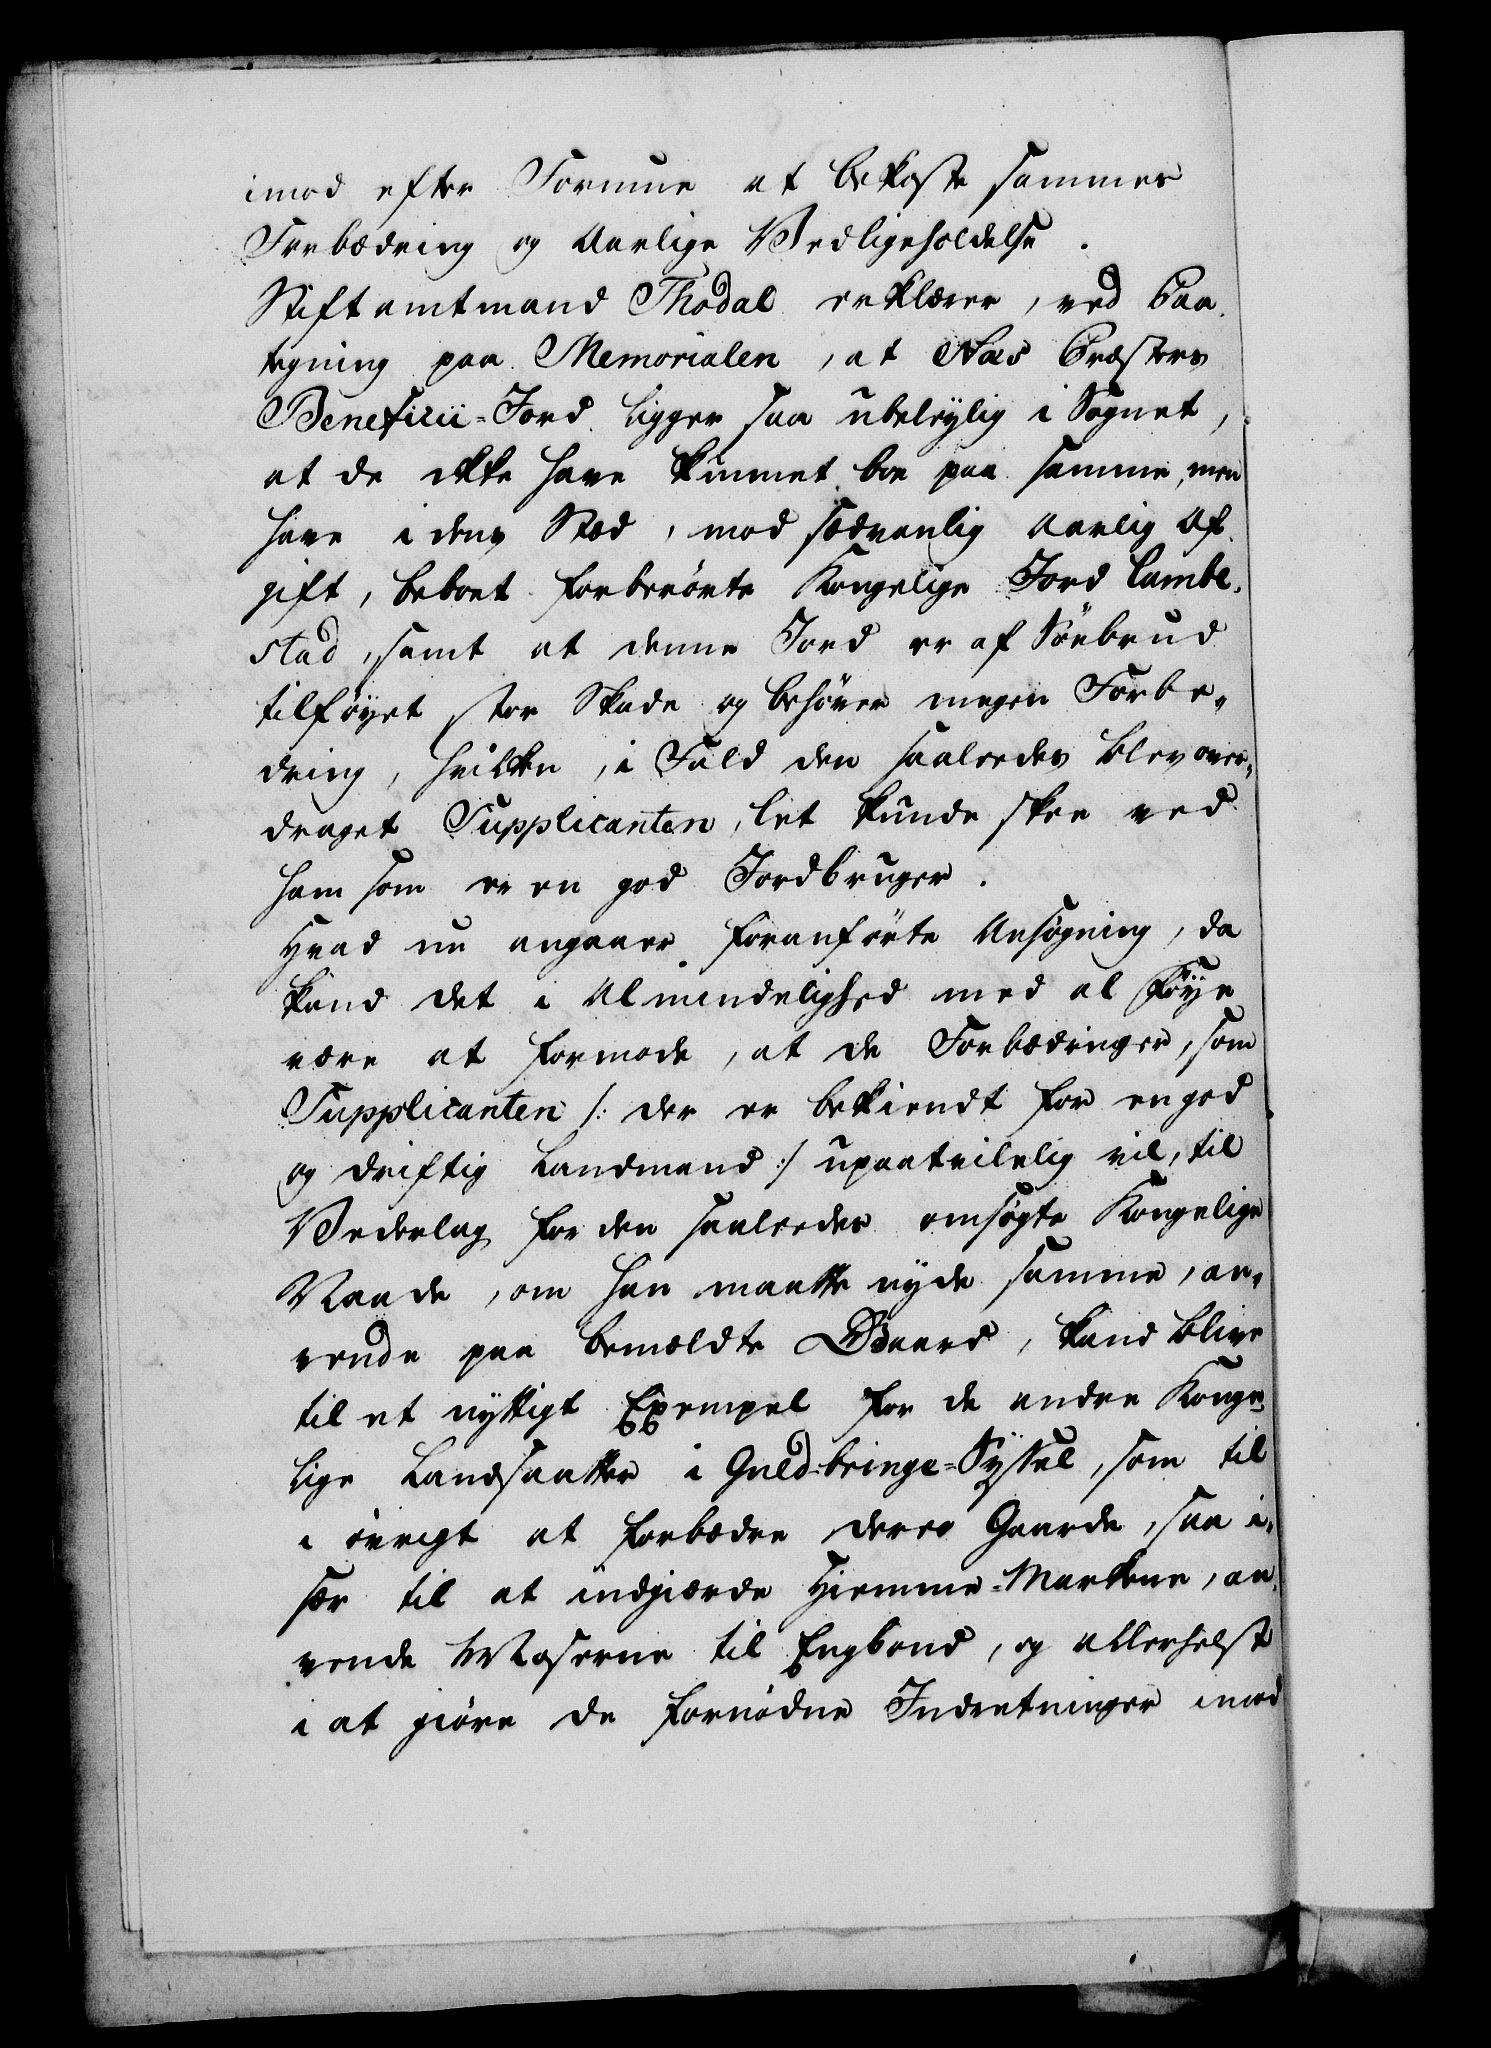 imod efter Formue at bekoste sammes
Forbædring og Aarlige Vedligeholdelse.
Stiftamtmand Thodal erklærer, ved Paa-
tegning paa Memorialen, at Næs Præsters
Beneficii-Jord ligger saa ubeleylig i Sognet,
at de ikke have kunnet boe paa samme, men
have i dens Sted, mod sædvanlig Aarlig Af-
gift, beboet forberörte Kongelige Jord Lambe-
stad, samt at denne Jord er af Söebrud
tilföyet stor Skade og behöver megen Forbe-
dring, hvilken, i Fald den saaledes blev over-
draget Supplicanten, let kunde skee ved
ham som er en god Jordbruger.
Hvad nu angaaer foranförte Ansögning, da
kand det i Almindelighed med al Föye
være at formode, at de Forbædringer, som
Supplicanten /: der er bekiendt for en god
og driftig Landmand :/ upaatvilelig vil, til
Vederlag for den saaledes omsögte Kongelige
Naade, om han maatte nyde samme, an-
vende paa bemældte Gaard, kand blive
til et nyttigt Exempel for de andre Konge-
lige Landsaatter i Guldbringe-Syssel, som til
i övrigt at forbædre deres Gaarde, saa i-
sær til at indgiærde Hiemme-Markene, an-
vende Moserne til Engbond, og allerhelst
i at giöre de fornödne Indretninger imod